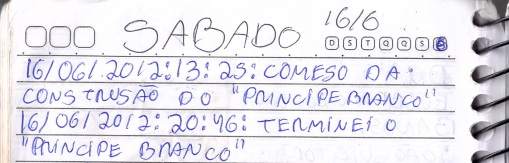 16/6
SABADO
D S T Q Q S S
16/06/2012:13:23:COMESO DA
CONSTRUSÃO DO "PRINCIPE BRANCO"
16/06/2012:20:46:TERMINEI O
"PRINCIPE BRANCO"